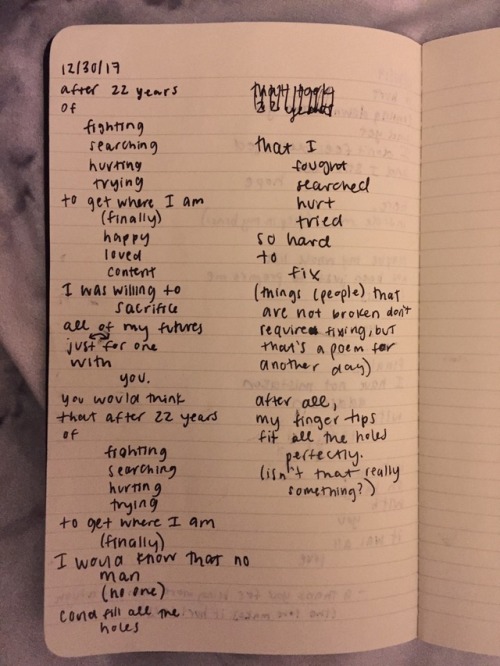 12/30/17
after 22 years
of
fighting
searching
hurting
trying
to get where I am
(finally)
happy
loved
content
I was willing to
sacrifice
all of my futures
just for one
with
you.
you would think
that after 22 years
of
fighting
searching
hurting
trying
to get where I am
(finally)
I would know that no
man
(no one)
could fill all the
holes
that I
fought
searched
hurt
tried
so hard
to
fix
(things (people) that
are not broken don't
require fixing, but
that's a poem for
another day)
after all,
my finger tips
fit all the holes
perfectly.
(isn't that really
something?)